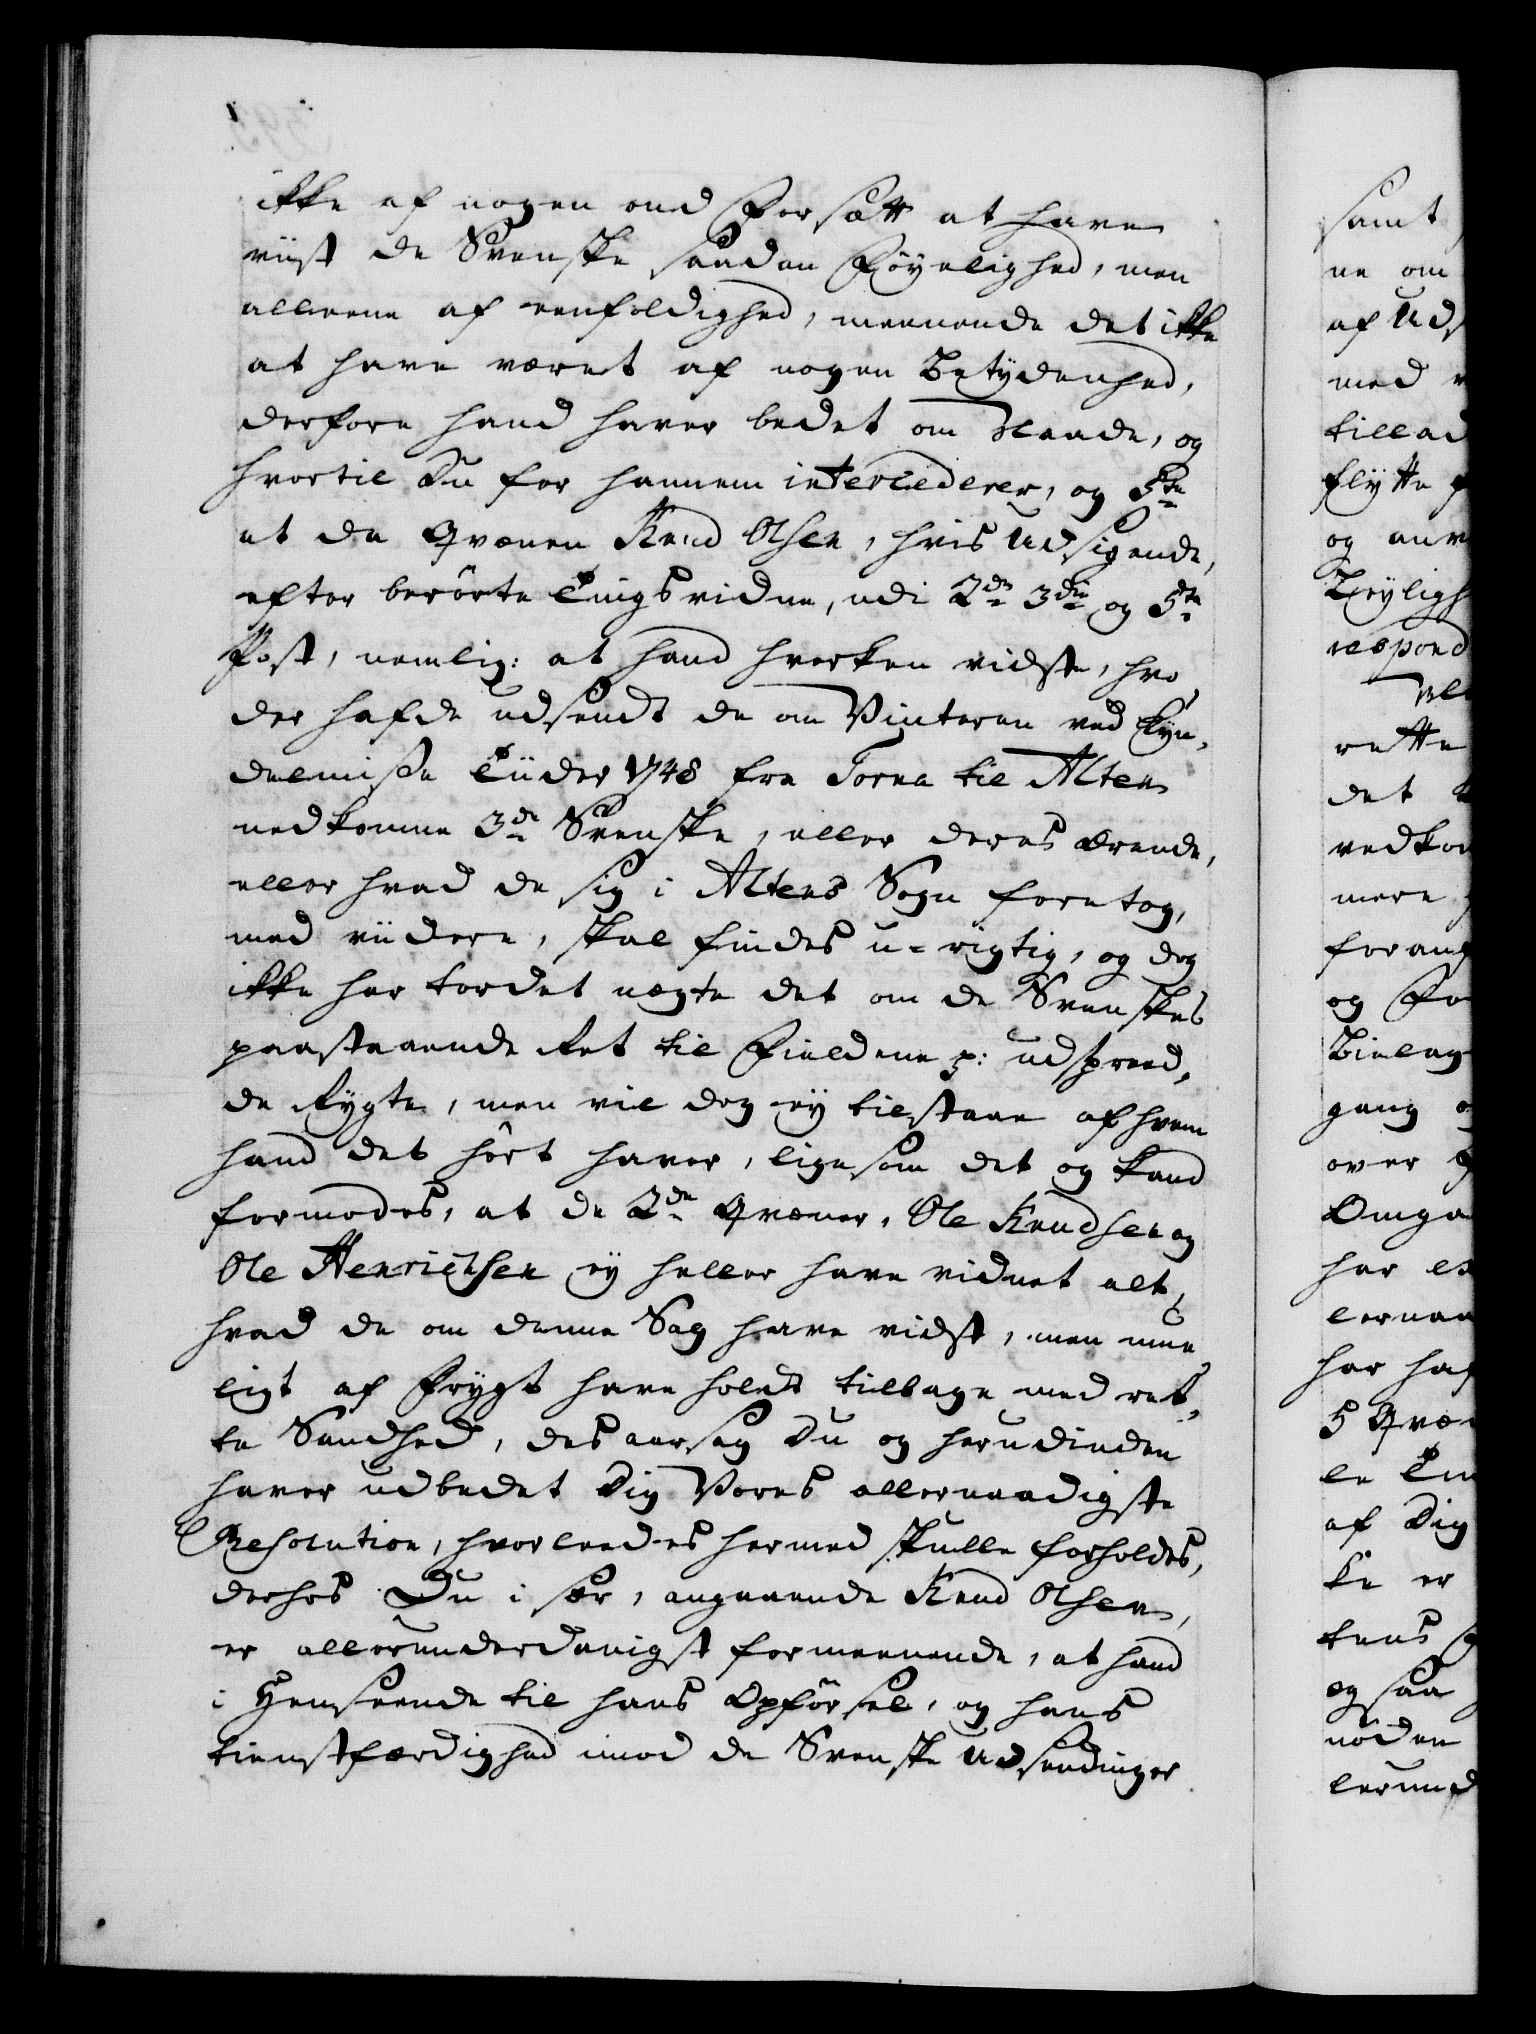 ikke af nogen ond Forsætt at have
viist de Svenske saadan Föyelighed, men
alleene af eenfoldighed, meenende det ikke
at have været af nogen Betÿdenhed,
derfore hand haver bedet om Naade, og
hvortil Du for hannem intercederer, og 5te
at da Qvænen Knud Olsen, hvis Udsigende,
efter berörte Tingsvidne, udi 2de 3die og 5te
Post, nemlig: at hand hverken vidste, hvo
der hafde udsendt de om Vinteren ved Kÿn,,
delmisse Tiider 1748 fra Torna til Alten
nedkomne 3de Svenske, eller deres Ærende,
eller hvad de sig i Altens Sogn foretog,
med viidere, skal findes u-rigtig, og dog
ikke har tordet nægte det om de Svenskes
paastaaende Ret til Fieldene p: udspreed,,
de Rÿgte, men vil dog eÿ tilstaae af hvem
hand det hört haver, ligesom det og kand
formodes, at de 2de Qvæner, Ole Knudsen og
Ole Henrichsen eÿ heller have vidnet alt,
hvad de om denne Sag have vidst, men mue,,
ligt af Frÿgt have holdt tilbage med ret,,
te Sandhed, desaarsag Du og herudinden
haver udbedet dig Vores allernaadigste
Resolution, hvorleedes hermed skulle forholdes,
derhos Du i sær, angaaende Knud Olsen,
er allerunderdanigst formeenende, at hand
i Henseende til hans Opförsel, og hans
tienstfærdighed imod de Svenske Udsendinger
samt
ne om
af Uds
med
tillad
flÿtte
og anv
Beÿligh
respond
rette
det
vedkom
mere
foran
og Fo
Bielag
gang
over
Omga
har
lernaa
har haf
5 Qvæ
le Tin
af Dig
ke er
tens
og saa
nöden
lerund